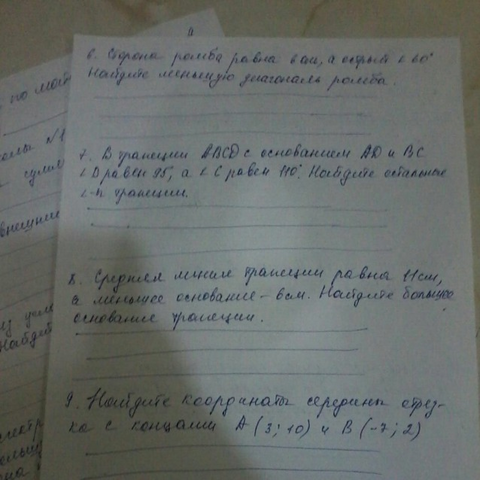 6. Сторона ромба равна 6 см, а острый ∠ 60°
Найдите меньшую диагональ ромба.
7. В трапеции ABCD с основанием AD и BC
∠ D равен 95°, а ∠ C равен 110°. Найдите остальные
∠-ы трапеции.
8. Средняя линия трапеции равна 11 см,
а меньшее основание - 8 см. Найдите большее
основание трапеции.
9. Найдите координаты середины отрез-
ка с концами A (3; 10) и B (-7; 2)
по мат
внешние
из
Найдит